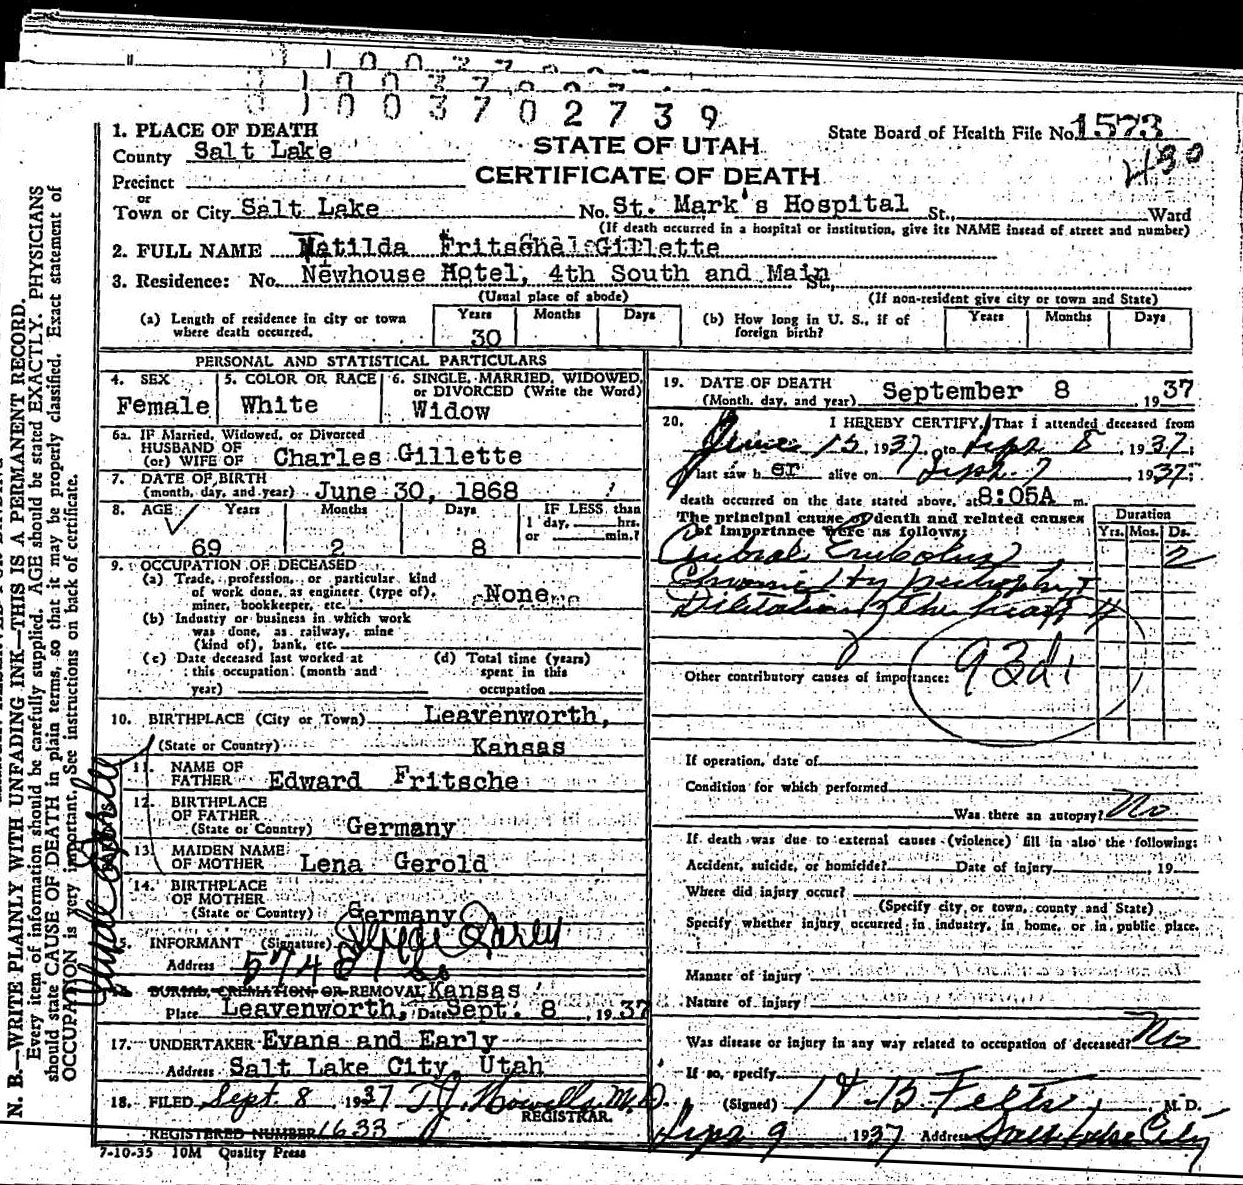 1003702739
1. PLACE OF DEATH
County Salt Lake
Precinct
or
Town or City Salt Lake
STATE OF UTAH
CERTIFICATE OF DEATH
State Board of Health File No. 1573
430
No. St. Mark's Hospital St., Ward
(If death occurred in a hospital or institution, give its NAME instead of street and number)
2. FULL NAME Matilda Fritschel Gillette
3. Residence: No. Newhouse Hotel, 4th South and Main St.,
(Usual place of abode)
(If non-resident give city or town and State)
(a) Length of residence in city or town where death occurred. Years 30 Months Days
(b) How long in U. S., if of foreign birth? Years Months Days
PERSONAL AND STATISTICAL PARTICULARS
4. SEX Female
5. COLOR OR RACE White
6. SINGLE, MARRIED, WIDOWED, or DIVORCED (Write the Word) Widow
6a. IF Married, Widowed, or Divorced
HUSBAND OF
(or) WIFE OF Charles Gillette
7. DATE OF BIRTH
(month, day, and year) June 30, 1868
8. AGE Years 69 Months 2 Days 8 IF LESS than 1 day, hrs. or min.?
9. OCCUPATION OF DECEASED
(a) Trade, profession, or particular kind
of work done, as engineer (type of),
miner, bookkeeper, etc. None
(b) Industry or business in which work
was done, as railway, mine
(kind of), bank, etc.
(c) Date deceased last worked at this occupation (month and year)
(d) Total time (years) spent in this occupation
10. BIRTHPLACE (City or Town) Leavenworth,
(State or Country) Kansas
11. NAME OF
FATHER Edward Fritsche
12. BIRTHPLACE
OF FATHER
(State or Country) Germany
13. MAIDEN NAME
OF MOTHER Lena Gerold
14. BIRTHPLACE
OF MOTHER
(State or Country) Germany
15. INFORMANT (Signature)
Address 574
16. BURIAL, CREMATION, OR REMOVAL Kansas
Place Leavenworth, Date Sept. 8, 1937
17. UNDERTAKER Evans and Early
Address Salt Lake City, Utah
18. FILED Sept 8 1937 T.J. Howells M.D.
REGISTRAR.
REGISTERED NUMBER 1633
7-10-35 10M Quality Press
19. DATE OF DEATH
(Month, day, and year) September 8, 1937
20. I HEREBY CERTIFY, That I attended deceased from
June 15, 1937, to Sept 8, 1937,
last saw her alive on Sept. 7 1937;
death occurred on the date stated above, at 8:05A m.
The principal cause of death and related causes
of importance were as follows:
Duration
Yrs. Mos. Ds.
Cerebral Embolus 2
Chronic Hypertrophy +
Dilitation of the heart 4
93d1
Other contributory causes of importance:
If operation, date of
Condition for which performed
Was there an autopsy? No
If death was due to external causes (violence) fill in also the following:
Accident, suicide, or homicide? Date of injury, 19
Where did injury occur?
(Specify city or town, county and State)
Specify whether injury occurred in industry, in home, or in public place.
Manner of injury
Nature of injury
Was disease or injury in any way related to occupation of deceased? No
If so, specify
(Signed) H. B. Felts, M. D.
Sept 9 1937 Address Salt Lake City
N. B.—WRITE PLAINLY WITH UNFADING INK—THIS IS A PERMANENT RECORD.
Every item of information should be carefully supplied. AGE should be stated EXACTLY. PHYSICIANS
should state CAUSE OF DEATH in plain terms, so that it may be properly classified. Exact statement of
OCCUPATION is very important. See instructions on back of certificate.